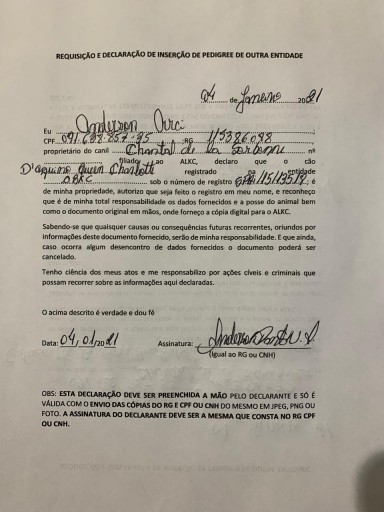 REQUISIÇÃO E DECLARAÇÃO DE INSERÇÃO DE PEDIGREE DE OUTRA ENTIDADE
04 de Janeiro 2021
Eu Anderson
CPF RG
proprietário do canil Chantal de la nº
filiado ao ALKC, declaro que o cão
D'aquino Queen Charlotte registrado na entidade
sob o número de registro é
de minha propriedade, autorizo que seja feito o registro em meu nome, e reconheço
que é de minha total responsabilidade os dados fornecidos e a posse do animal bem
como o documento original em mãos, onde forneço a cópia digital para o ALKC.
Sabendo-se que quaisquer causas ou consequências futuras recorrentes, oriundos por
informações deste documento fornecido, serão de minha responsabilidade. E que ainda,
caso ocorra algum desencontro de dados fornecidos o documento poderá ser
cancelado.
Tenho ciência dos meus atos e me responsabilizo por ações cíveis e criminais que
possam recorrer sobre as informações aqui declaradas.
O acima descrito é verdade e dou fé
Data: 04/01/2021 Assinatura: Anderson
(Igual ao RG ou CNH)
OBS: ESTA DECLARAÇÃO DEVE SER PREENCHIDA A MÃO PELO DECLARANTE E SÓ É
VÁLIDA COM O ENVIO DAS CÓPIAS DO RG E CPF OU CNH DO MESMO EM JPEG, PNG OU
FOTO. A ASSINATURA DO DECLARANTE DEVE SER A MESMA QUE CONSTA NO RG CPF
OU CNH.